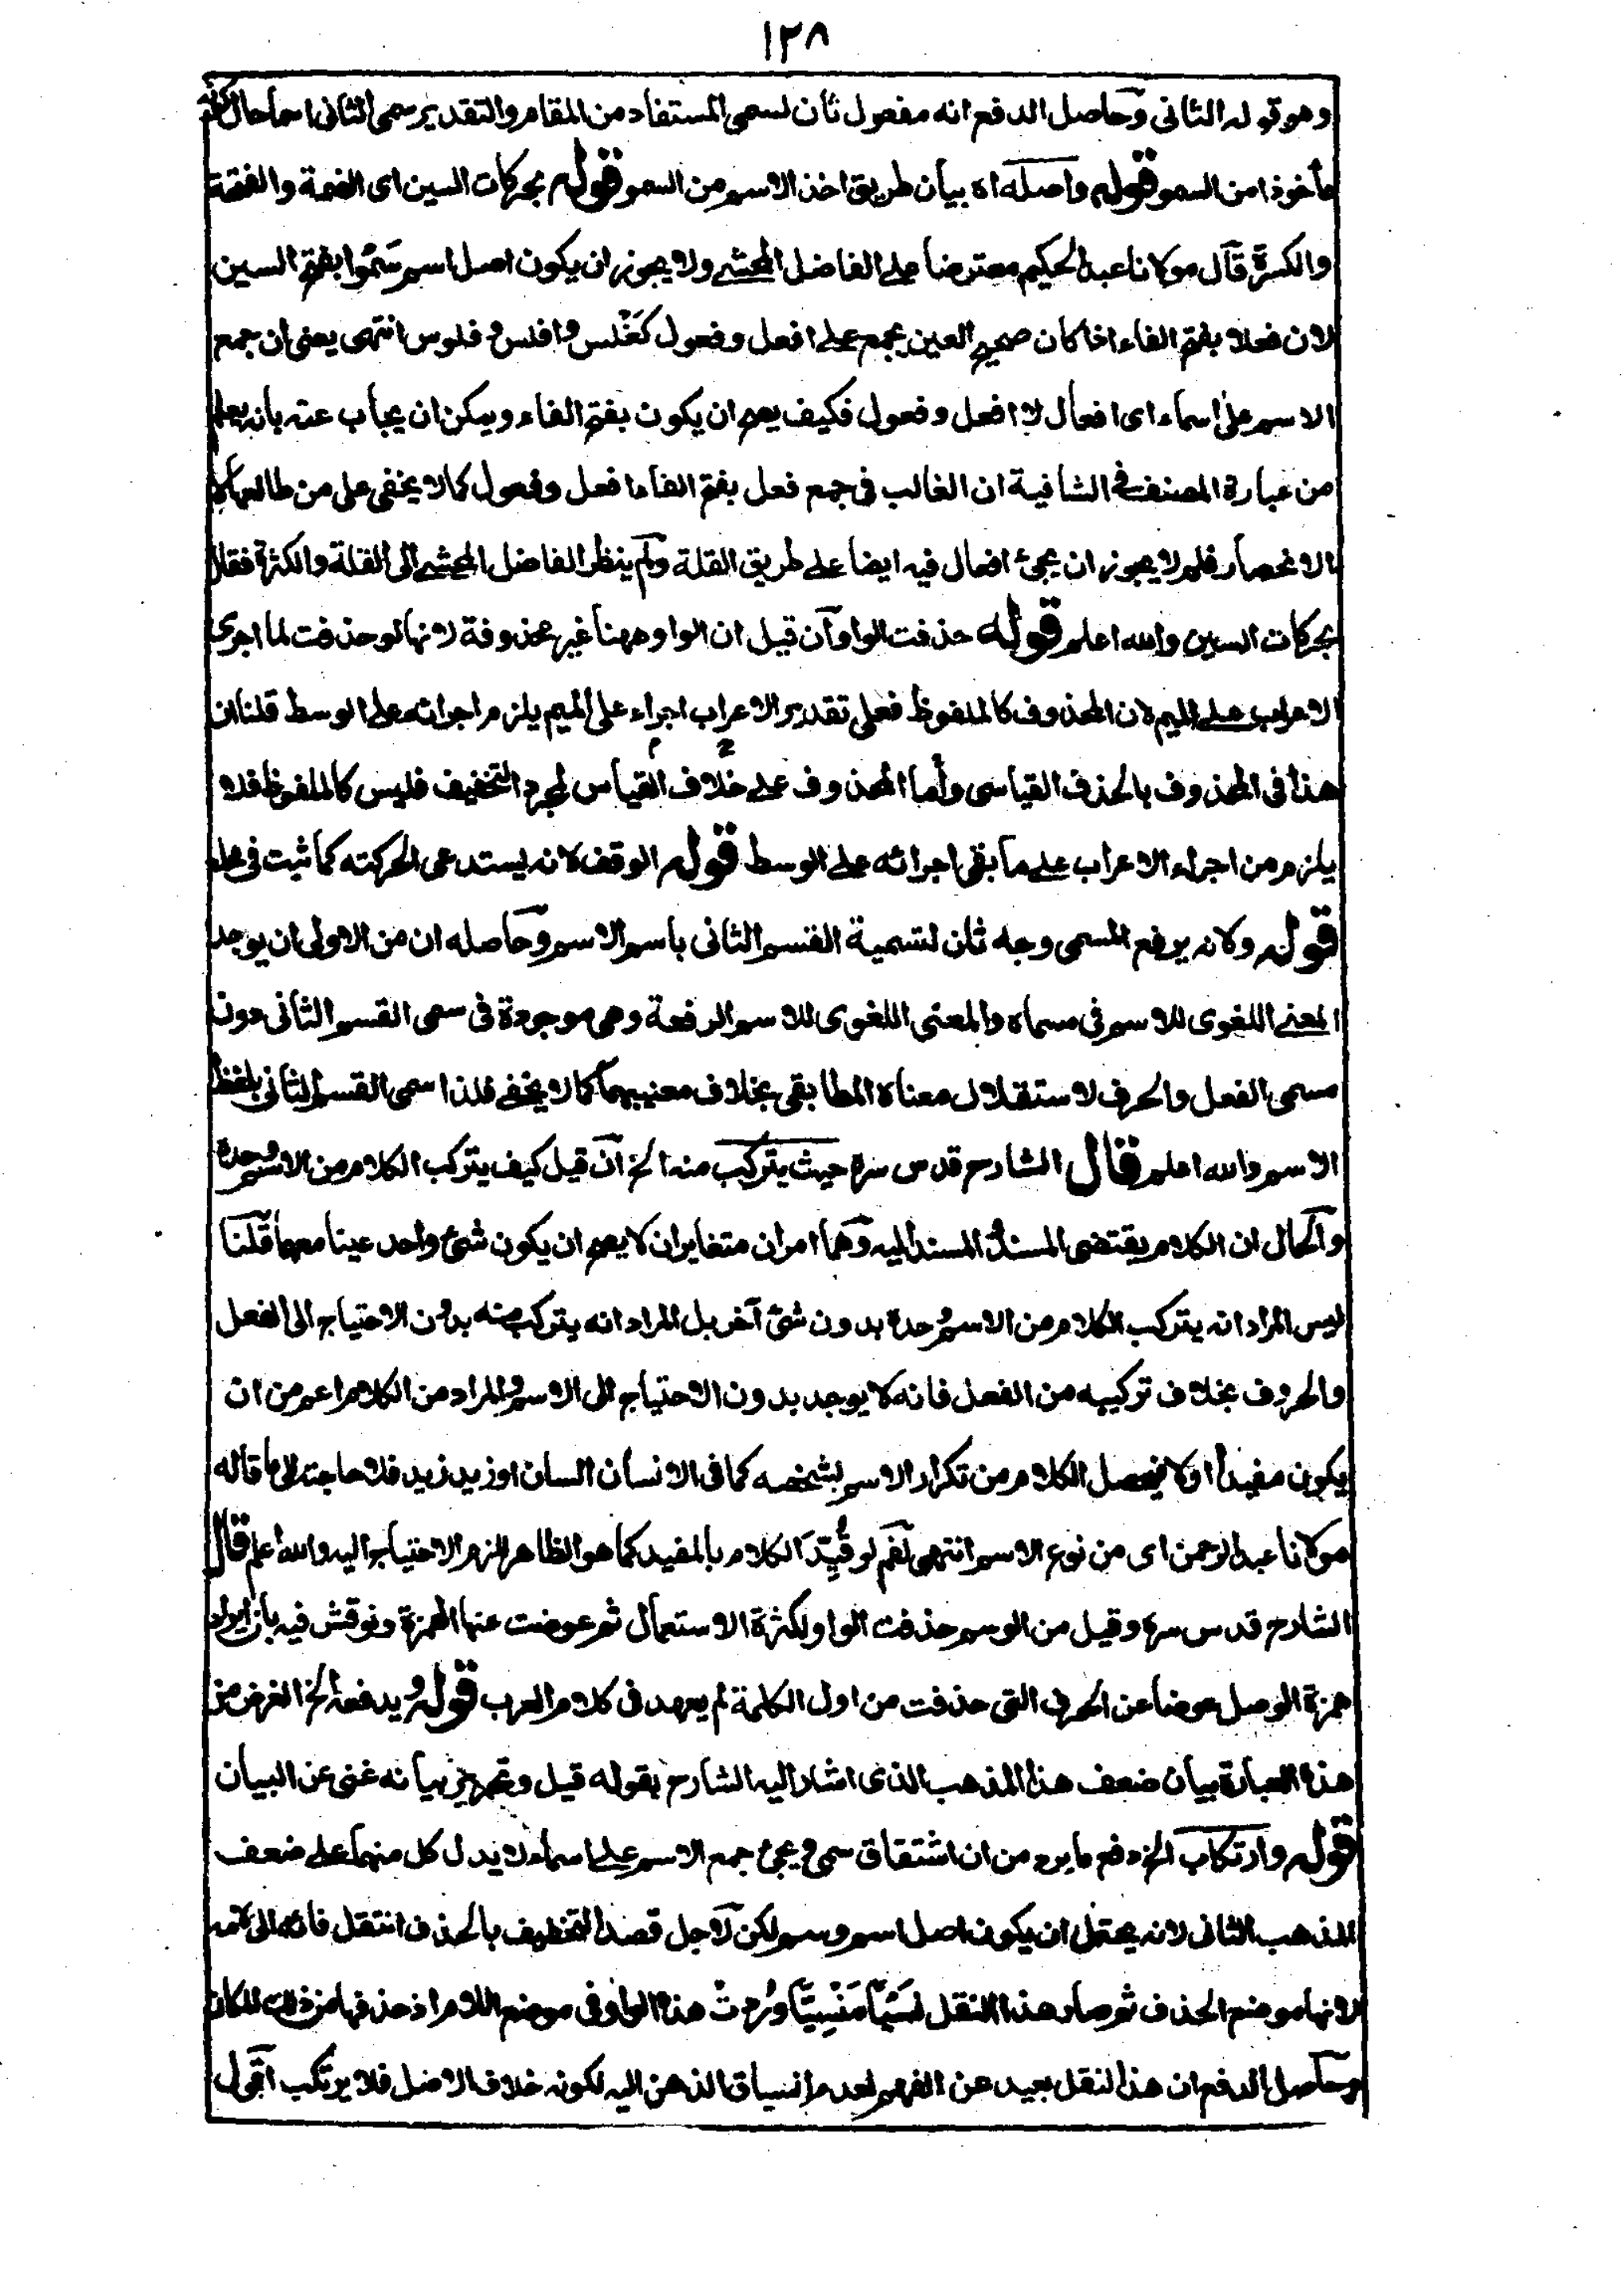 ١٢٨
وهو قوله الثانى وحاصل الدفع انه مفعول ثان لسمى المستفاد من المقام والتقدير سمى الثانى اسما حال كونه
مأخوذا من السمو قوله واصله اه بيان طريق اخذ الاسم من السمو قوله بحركات السين اى الضمة والفتحة
والكسرة قال مولانا عبد الحكيم معترضا على الفاضل المحشے ولا يجوز ان يكون اصل اسم سَمْوا بفتح السين
لان فعلا بفتح الفاء اذا كان صحيح العين يجمع على افعل وفعول كفَلْس وافلس وفلوس انتهى يعنى ان جمع
الاسم على اسماء اى افعال لا افعل وفعول فكيف يصح ان يكون بفتح الفاء ويمكن ان يجاب عنه بانه يعلم
من عبارة المصنف فى الشافية ان الغالب فى جمع فعل بفتح الفاء افعل وفعول كما لا يخفى على من طالعها لا
الانحصار فلم لا يجوز ان يجئ افعال فيه ايضا على طريق القلة ولم ينظر الفاضل المحشے الى القلة والكثرة فقال
بحركات السين والله اعلم قوله حذفت الواو آن قيل ان الواو ههنا غير محذوفة لانها لو حذفت لما اجرى
الاعراب على الميم لان المحذوف كالملفوظ فعلى تقدير الاعراب اجراء على الميم يلزم اجرائه على الوسط قلنا ان
هذا فى المحذوف بالحذف القياسى وأما المحذوف على خلاف القياس لمجرد التخفيف فليس كالملفوظ فلا
يلزم من اجراء الاعراب على ما بقى اجرائه على الوسط قوله الوقف لانه يستدعى الحركته كما ثبت فى محله
قوله ولانه يرفع المسمى وجه ثان لتسمية القسم الثانى باسم الاسم وحاصله ان من الاولى ان يوجد
المعنے اللغوى للاسم فى مسماه والمعنى اللغوى للاسم الرفعة وهى موجودة فى سمى القسم الثانى دون
مسمى الفعل والحرف لاستقلال معناه المطابقى بخلاف معنييهما كما لا يخفے فلذا سمى القسم الثانى بلفظ
الاسم والله اعلم قال الشارح قدس سره حيث يتركب منه الخ آن قيل كيف يتركب الكلام من الاسم وحده
والحال ان الكلام يقتضى المسند والمسند اليه وهما امران متغايران لا يصح ان يكون شئ واحد عينا معهما قلنا
ليس المراد انه يتركب الكلام من الاسم وحده بدون شئ آخر بل المراد انه يتركب منه بدون الاحتياج الى الفعل
والحروف بخلاف تركيبه من الفعل فانه لا يوجد بدون الاحتياج الى الاسم والمراد من الكلام اعم من ان
يكون مفيدا او لا فيحصل الكلام من تكرار الاسم بشخصه كما فى الانسان انسان او زيد زيد فلا حاجة الى ما قاله
مولانا عبد الرحمن اى من نوع الاسم انتهى نعم لو قُيِّدَ الكلام بالمفيد كما هو الظاهر لزم الاحتياج اليه والله اعلم قال
الشارح قدس سره وقيل من الوسم حذفت الواو لكثرة الاستعمال ثم عوضت عنها الهمزة ونوقش فيه بان ايراد
همزة الوصل عوضا عن الحرف التى حذفت من اول الكلمة لم يعهد فى كلام العرب قوله ويدفعه الخ الغرض من
هذه العبارة بيان ضعف هذا المذهب الذى اشار اليه الشارح بقوله قيل وتمريض بيانه غنى عن البيان
قوله وارتكاب الخ دفع ما يرد من ان اشتقاق سمى ويجئ جمع الاسم على اسماء لا يدل كل منهما على ضعف
المذهب الثانى لانه يحتمل ان يكون اصل اسم وسم لكن لاجل قصد التخفيف بالحذف انتقل فائه الى لامه
لانها موضع الحذف ثم صار هذا النقل نَسْيًا مَنْسِيًّا ورُدت هذه الواو فى موضع اللام اذ حذفها من ذلك المكان
وحاصل الدفع ان هذا النقل بعيد عن الفهم لعدم انسياق الذهن اليه لكونه خلاف الاصل فلا يرتكب اقول